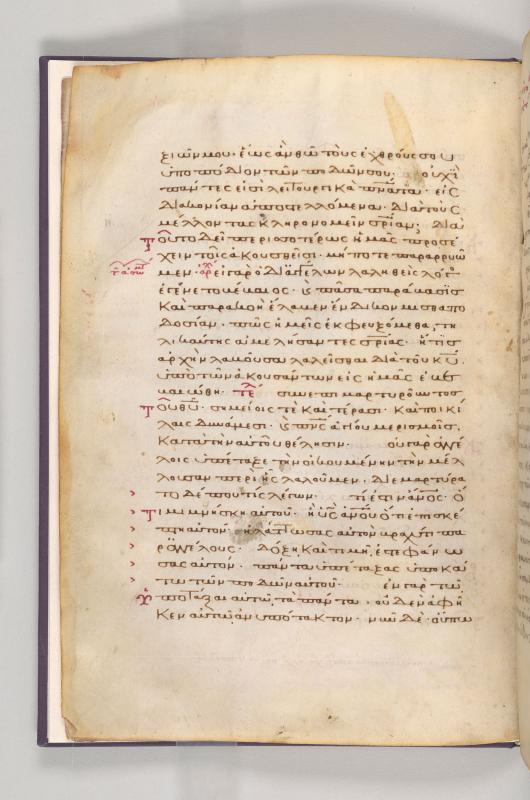 ξιῶν μου· ἕως ἂν θῶ τοὺς ἐχθρούς σου
ὑποπόδιον τῶν ποδῶν σου· οὐχὶ
πάντες εἰσὶ λειτουργικὰ πν̅α̅τα· εἰς
διακονίαν ἀποστελλόμενα· διὰ τοὺς
μέλλοντας κληρονομεῖν σ̅ρ̅ίαν· διὰ
τοῦτο δεῖ περισοτέρως ἡμᾶς προσέ
χειν τοῖς ἀκουσθεῖσι· μήποτε παραρρυῶ
μεν· εἰ γὰρ ὁ δι' ἀγγέλων λαληθεὶς λόγος
ἐγένετο βέβαιος· ϗ πᾶσα παράβασις
καὶ παρακοὴ ἔλαβεν ἔνδικον μισθαπο
δοσίαν· πῶς ἡμεῖς ἐκφευξόμεθα, τη
λικαύτης ἀμελήσαντες σ̅ρ̅ίας· ἥτις
ἀρχὴν λαβοῦσα λαλεῖσθαι διὰ τοῦ κ̅υ̅.
ὑπὸ τῶν ἀκουσάντων εἰς ἡμᾶς ἐβε
βαιώθη· συνεπιμαρτυροῦντος
τοῦ θ̅υ̅· σημείοις τὲ καὶ τέρασι· καὶ ποικί
λαις δυνάμεσι· ϗ π̅ν̅ς̅ ἁγίου μερισμοῖς·
κατὰ τὴν αὐτοῦ θέλησιν· οὐ γὰρ ἀγγέ
λοις ὑπέταξε τὴν οἰκουμένην τὴν μέλ
λουσαν περὶ ἧς λαλοῦμεν· διεμαρτύρα
το δέ που τίς λέγων· τί ἐστιν ἄ̅ν̅ο̅ς̅· ὅ
τι μιμνήσκη αὐτοῦ· ἢ υ̅ς̅ ἀ̅ν̅ο̅υ̅ ὅτι ἐπισκέ
πτη αὐτόν· ἠλάττωσας αὐτὸν βραχύ τι πα
ρ' ἀγγέλους· δόξη καὶ τιμῆ ἐστεφάνω
σας αὐτόν· πάντα ὑπέταξας ὑποκά
τω τῶν ποδῶν αὐτοῦ· ἐν γὰρ τῶ
ὑποτάξαι αὐτῶ τὰ πάντα· οὐδὲν ἀφῆ
κεν αὐτῶ ἀνυπότακτον· νῦν δὲ· οὔπω